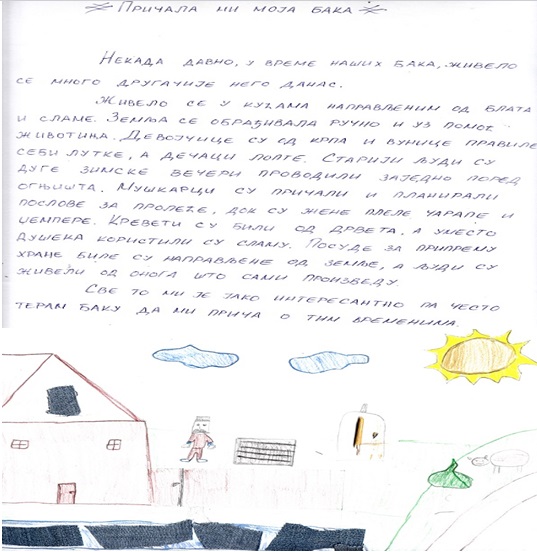 Причала ми моја бака
Некада давно, у време наших бака, живело
се много другачије него данас.
Живело се у кућама направљеним од блата
и сламе. Земља се обрађивала ручно и уз помоћ
животиња. Девојчице су од крпа и вунице правиле
себи лутке, а дечаци лопте. Старији људи су
дуге зимске вечери проводили заједно поред
огњишта. Мушкарци су причали и планирали
послове за пролеће, док су жене плеле чарапе и
џемпере. Кревети су били од дрвета, а уместо
душека користили су сламу. Посуде за припрему
хране биле су направљене од земље, а људи су
живели од онога што сами произведу.
Све то ми је јако интересантно па често
терам баку да ми прича о тим временима.